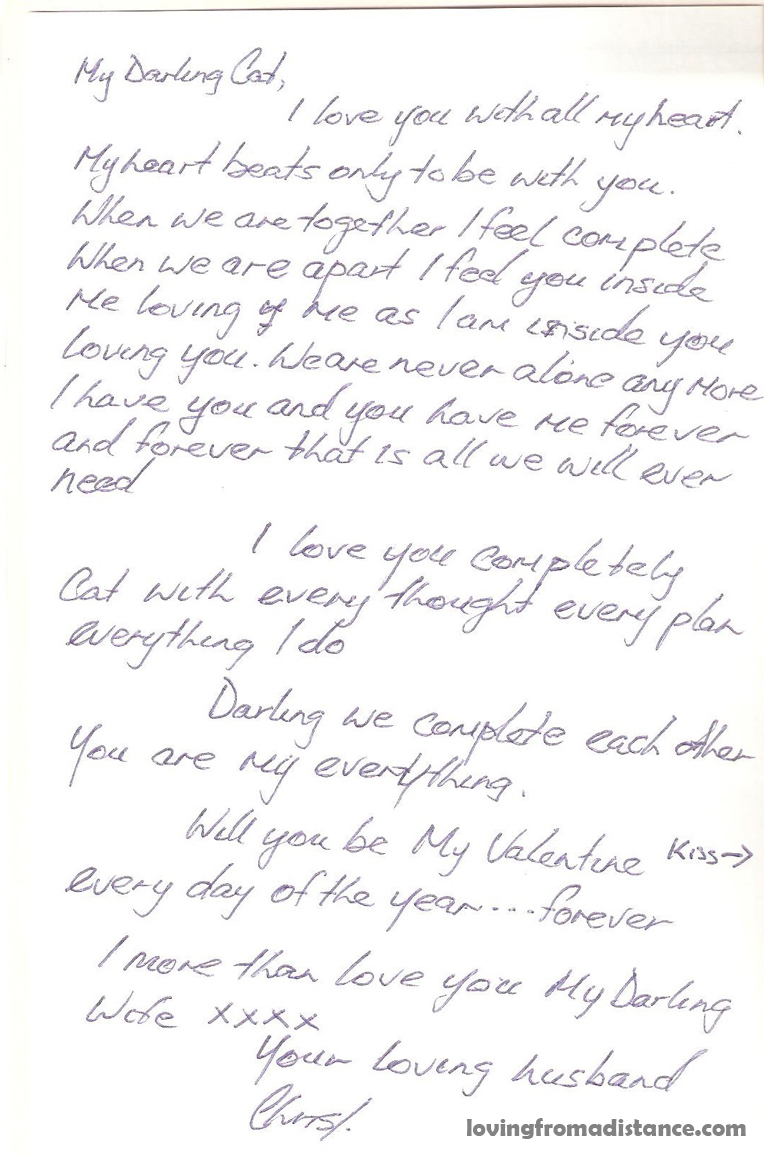 My Darling Cat,
I love you with all my heart.
My heart beats only to be with you.
When we are together I feel complete
When we are apart I feel you inside
me loving me as I am inside you
loving you. We are never alone any more
I have you and you have me forever
and forever that is all we will ever
need
I love you completely
Cat with every thought every plan
everything I do
Darling we complete each other
You are my everything.
Will you be My Valentine Kiss→
every day of the year...forever
I more than love you My Darling
Wife xxxx
Your loving husband
Chris
lovingfromadistance.com